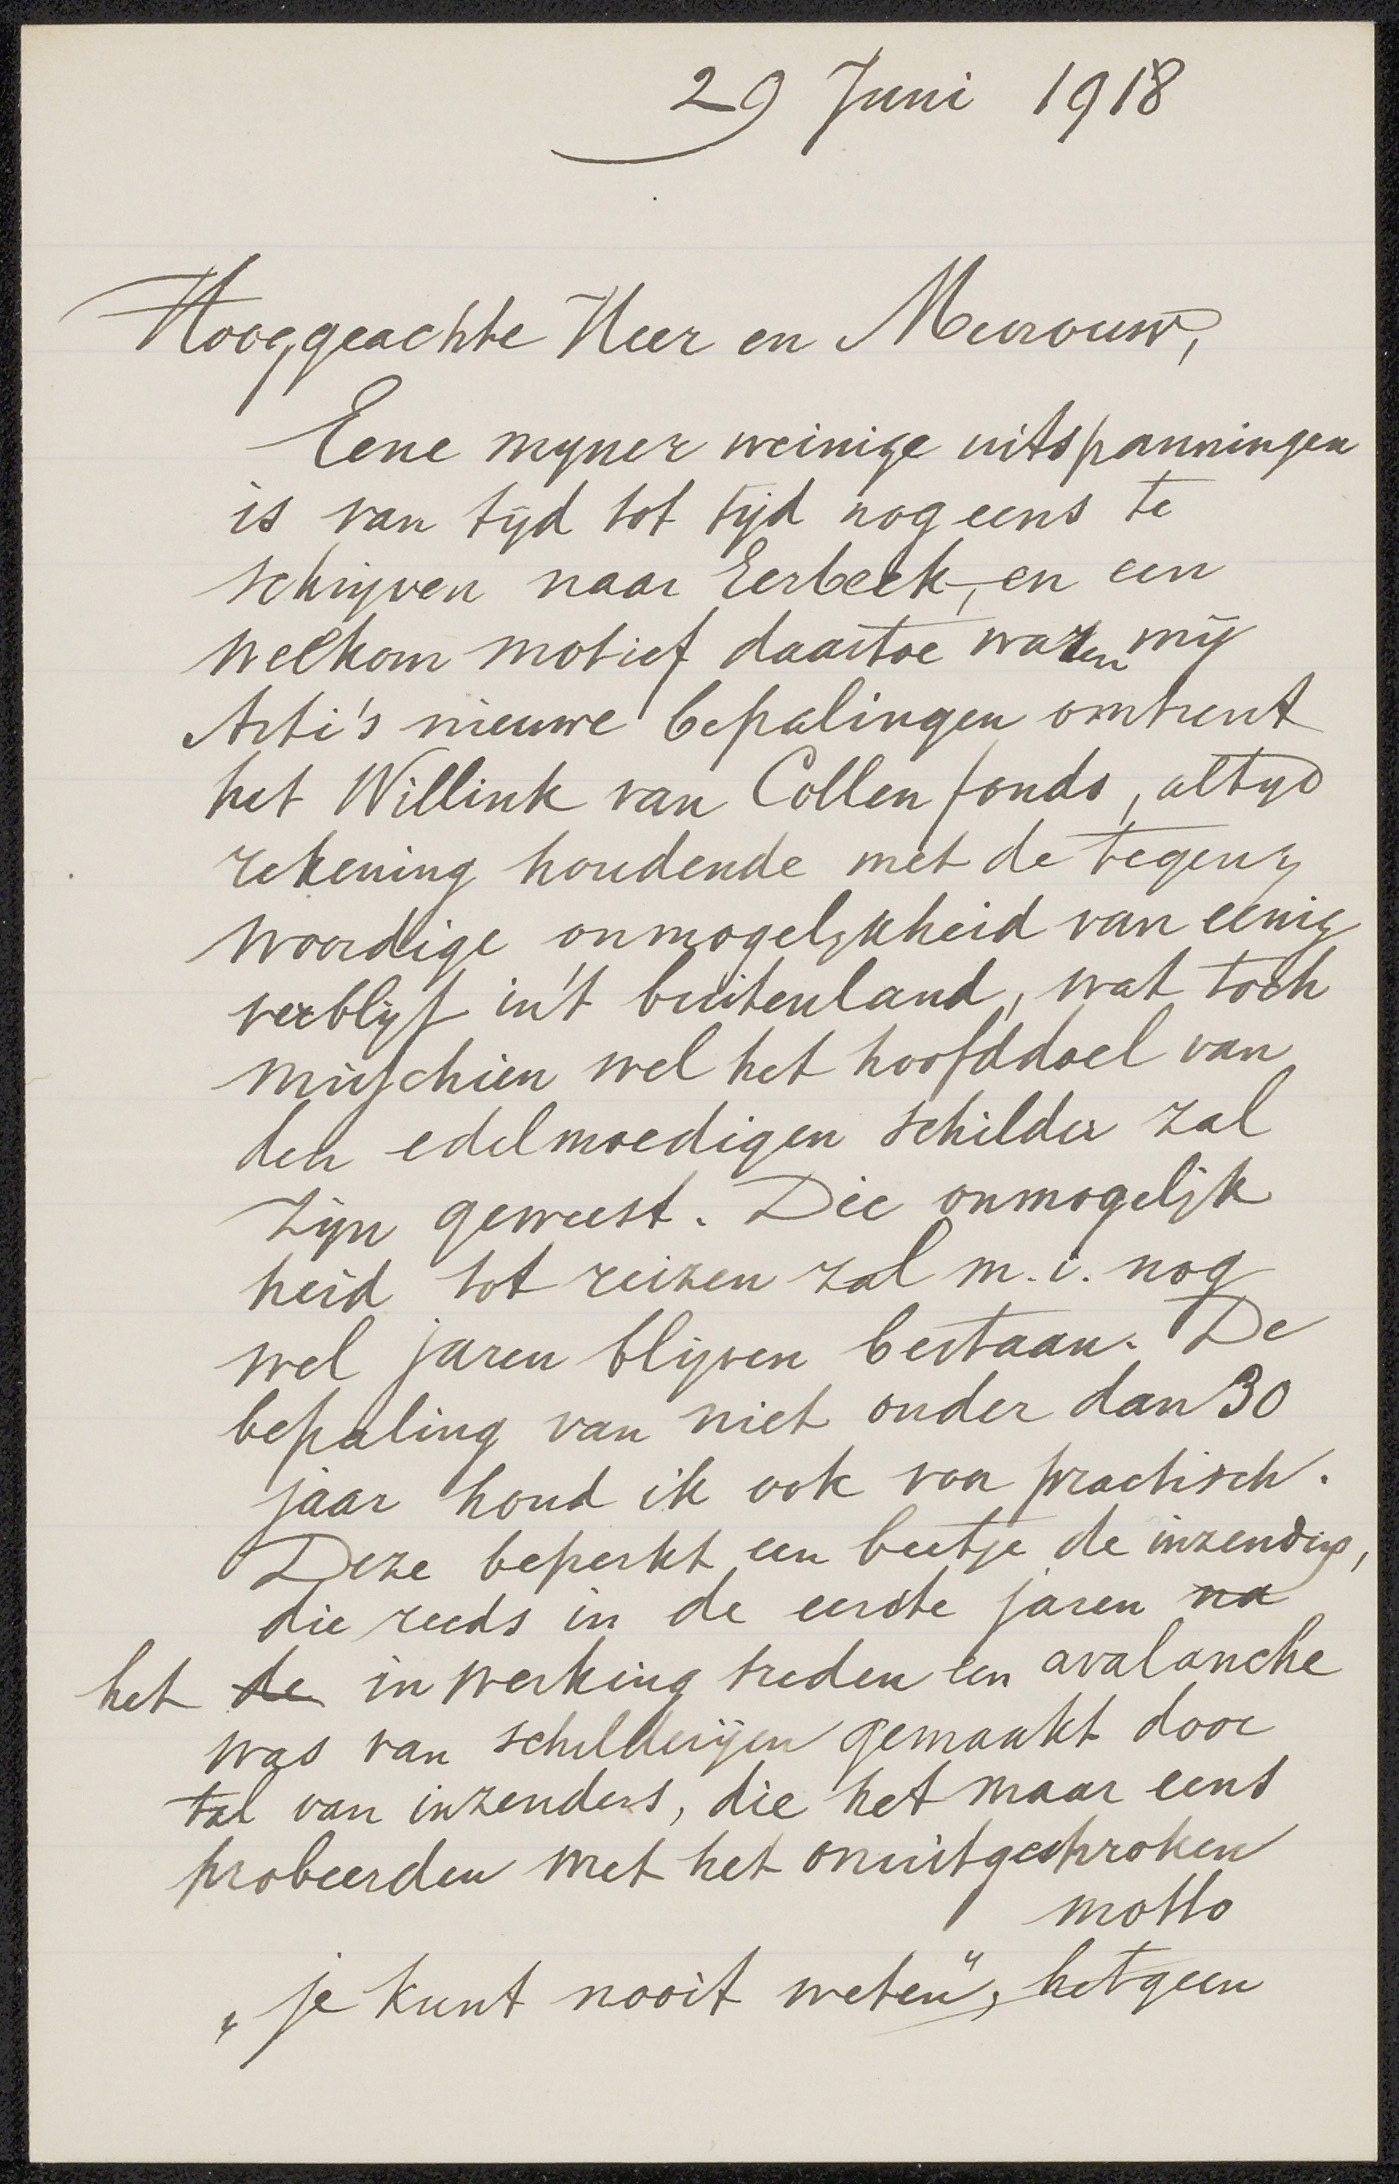 29 Juni 1918
Hooggeachte Heer en Mevrouw,
Eene mijner weinige uitspanningen
is van tijd tot tijd nog eens te
schrijven naar Eerbeek, en een
welkom motief daartoe waren mij
Arti's nieuwe bepalingen omtrent
het Willink van Collen fonds, altijd
rekening houdende met de tegen=
woordige onmogelijkheid van eenig
verblijf in't buitenland, wat toch
misschien wel het hoofddoel van
den edelmoedigen schilder zal
zijn geweest. Die onmogelijk
heid tot reizen zal m.i. nog
wel jaren blijven bestaan. De
bepaling van niet onder dan 30
jaar houd ik ook voor practisch.
Deze beperkt een beetje de inzending,
die reeds in de eerste jaren na
het de in werking treden een avalanche
was van schilderijen gemaakt door
tal van inzenders, die het maar eens
probeerden met het onuitgesproken
motto
„je kunt nooit weten", hetgeen